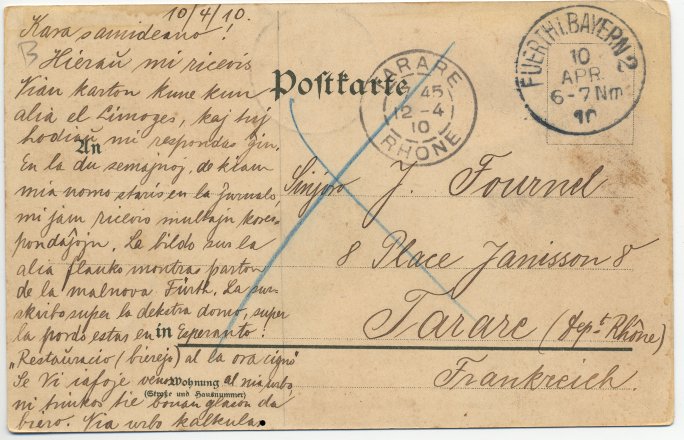 10/4/10.
Kara samideano!
Hieraŭ mi ricevis
Vian karton kune kun
alia el Limoges, kaj tuj
hodiaŭ mi respondas ĝin.
En la du semajnoj, de kiam
mia nomo staris en la Jurnalo,
mi jam ricevis multajn kores-
pondaĵojn. La bildo sur la
alia flanko montras parton
de la malnova Fürth. La sur-
skribo super la dekstra domo, super
la pordo estas en Esperanto:
„Restauracio (bierejo) al la ora cigno
Se Vi iafoje venos al nia urbo,
ni trinkos tie bonan glason da
biero. Via urbo kalkulas
B
Postkarte
An
in
Wohnung
(Straße und Hausnummer)
TARARE
7 45
12 - 4
10
RHÔNE
FUERTH I. BAYERN 2
10
APR.
6-7 Nm
10
Sinjoro J. Fournel
8 Place Janisson 8
Tarare (Dept Rhône)
Frankreich.